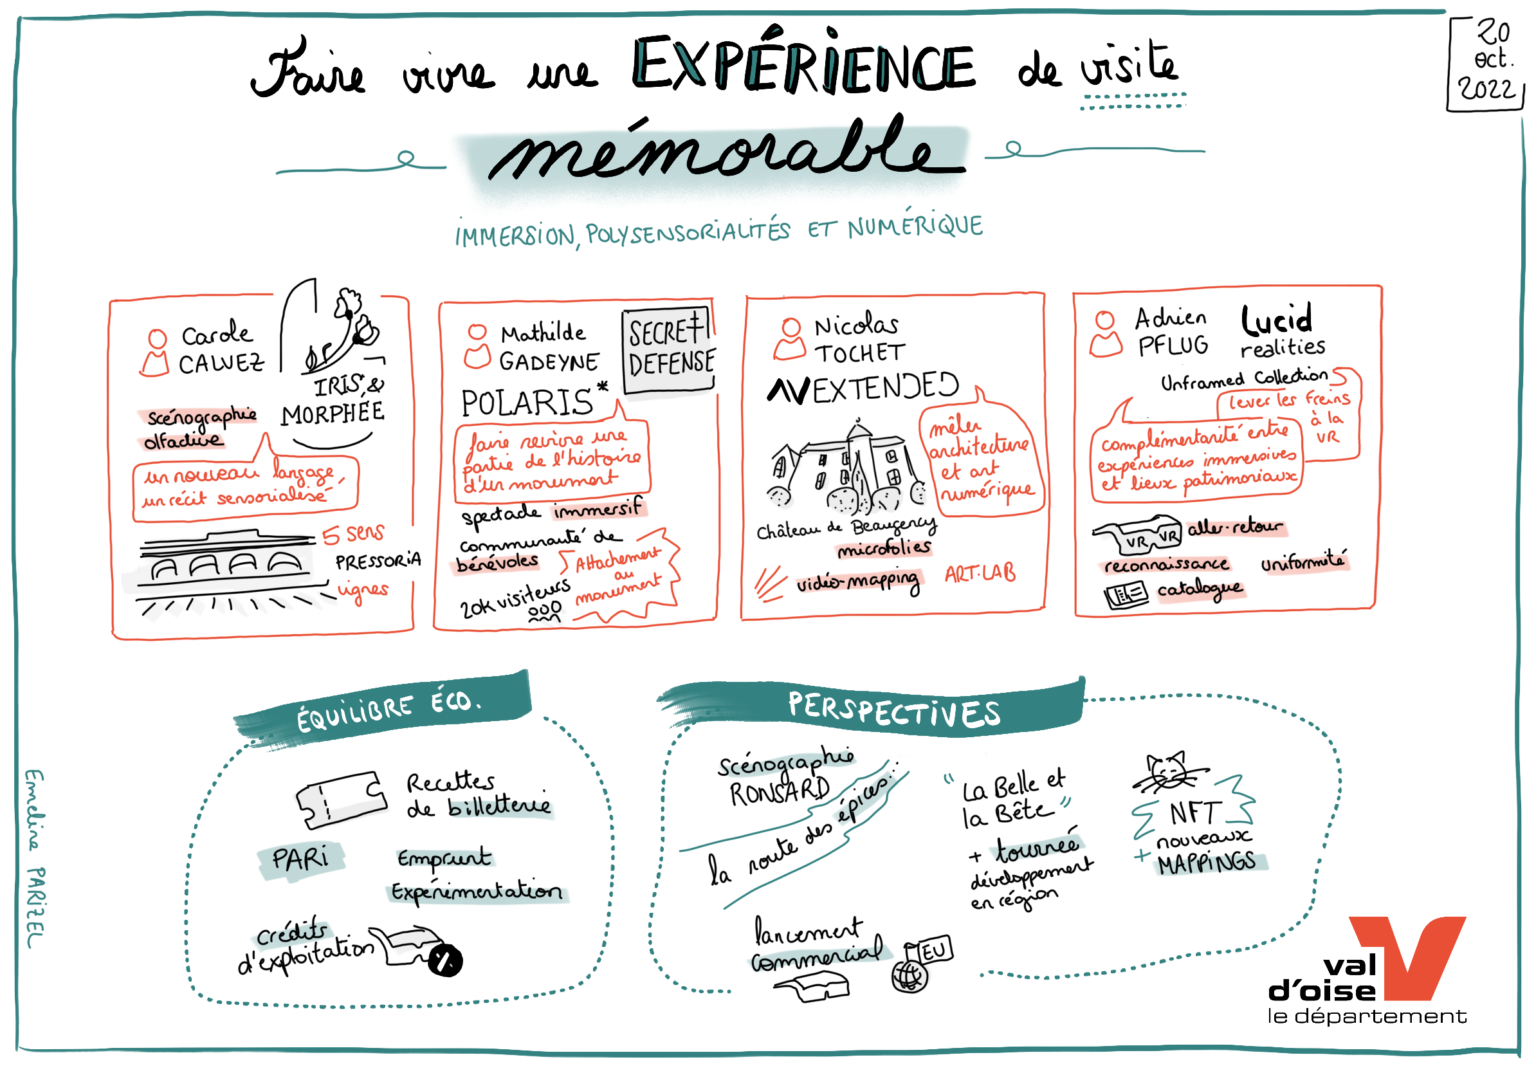 Faire vivre une EXPÉRIENCE de visite
mémorable
20
oct.
2022
IMMERSION, POLYSENSORIALITÉS ET NUMÉRIQUE
Carole
CALVEZ
IRIS &
MORPHÉE
scénographie
olfactive
un nouveau langage,
un récit sensorialisé
5 sens
PRESSORIA
vignes
Mathilde
GADEYNE
SECRET
DEFENSE
POLARIS*
faire revivre une
partie de l'histoire
d'un monument
spectacle immersif
communauté de
bénévoles
Attachement
au
monument
20k visiteurs
Nicolas
TOCHET
AVEXTENDED
mêler
architecture
et art
numérique
Château de Beaugency
microfolies
vidéo-mapping
ART-LAB
Adrien
PFLUG
Lucid
realities
Unframed Collection
lever les freins
à la
VR
complémentarité entre
expériences immersives
et lieux patrimoniaux
VR VR
aller-retour
reconnaissance
uniformité
catalogue
ÉQUILIBRE ÉCO.
Recettes
de billetterie
PARI
Emprunt
Expérimentation
crédits
d'exploitation
%
PERSPECTIVES
Scénographie
RONSARD
la route des épices...
"La Belle et
la Bête"
+ tournée
développement
en région
NFT
nouveaux
+ MAPPINGS
lancement
commercial
EU
Emeline PARIZEL
val
d'oise
le département